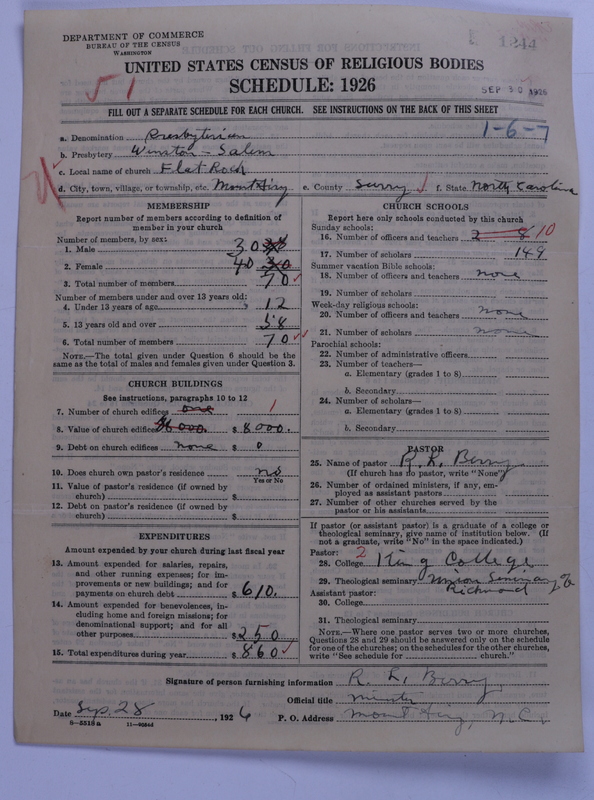 DEPARTMENT OF COMMERCE
BUREAU OF THE CENSUS
WASHINGTON
1244
UNITED STATES CENSUS OF RELIGIOUS BODIES
SCHEDULE: 1926
SEP 30 1926
51
FILL OUT A SEPARATE SCHEDULE FOR EACH CHURCH. SEE INSTRUCTIONS ON THE BACK OF THIS SHEET
1-6-7
a. Denomination Presbyterian
b. Presbytery Winston-Salem
c. Local name of church Flat Rock
d. City, town, village, or township, etc. Mount Airy e. County Surry f. State North Carolina
MEMBERSHIP
Report number of members according to definition of
member in your church
Number of members, by sex:
1. Male 30
2. Female 40 30
3. Total number of members 70
Number of members under and over 13 years old:
4. Under 13 years of age 12
5. 13 years old and over 58
6. Total number of members 70
NOTE.—The total given under Question 6 should be the
same as the total of males and females given under Question 3.
CHURCH BUILDINGS
See instructions, paragraphs 10 to 12
7. Number of church edifices one 1
8. Value of church edifices $ 8000.
9. Debt on church edifices none $ 0
10. Does church own pastor's residence no
Yes or No
11. Value of pastor's residence (if owned by
church) $
12. Debt on pastor's residence (if owned by
church) $
EXPENDITURES
Amount expended by your church during last fiscal year
13. Amount expended for salaries, repairs,
and other running expenses; for im-
provements or new buildings; and for
payments on church debt $ 610.
14. Amount expended for benevolences, in-
cluding home and foreign missions; for
denominational support; and for all
other purposes $ 250
15. Total expenditures during year $ 860
CHURCH SCHOOLS
Report here only schools conducted by this church
Sunday schools:
16. Number of officers and teachers 2 8 10
17. Number of scholars 149
Summer vacation Bible schools:
18. Number of officers and teachers none
19. Number of scholars
Week-day religious schools:
20. Number of officers and teachers none
21. Number of scholars none
Parochial schools:
22. Number of administrative officers
23. Number of teachers—
a. Elementary (grades 1 to 8)
b. Secondary
24. Number of scholars—
a. Elementary (grades 1 to 8)
b. Secondary
PASTOR
25. Name of pastor R. L. Berry
(If church has no pastor, write "None")
26. Number of ordained ministers, if any, em-
ployed as assistant pastors
27. Number of other churches served by the
pastor or his assistants
If pastor (or assistant pastor) is a graduate of a college or
theological seminary, give name of institution below. (If
not a graduate, write "No" in the space indicated.)
Pastor: 2
28. College King College
29. Theological seminary Union Seminary
Richmond
Assistant pastor:
30. College
31. Theological seminary
NOTE.—Where one pastor serves two or more churches,
Questions 28 and 29 should be answered only on the schedule
for one of the churches; on the schedules for the other churches,
write "See schedule for church."
Signature of person furnishing information R. L. Berry
Official title minister
Date Sep. 28, 1926 P. O. Address Mount Airy, N.C.
8-5519a